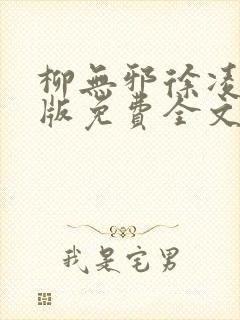 柳無邪徐凌
版免費全文
我是宅男